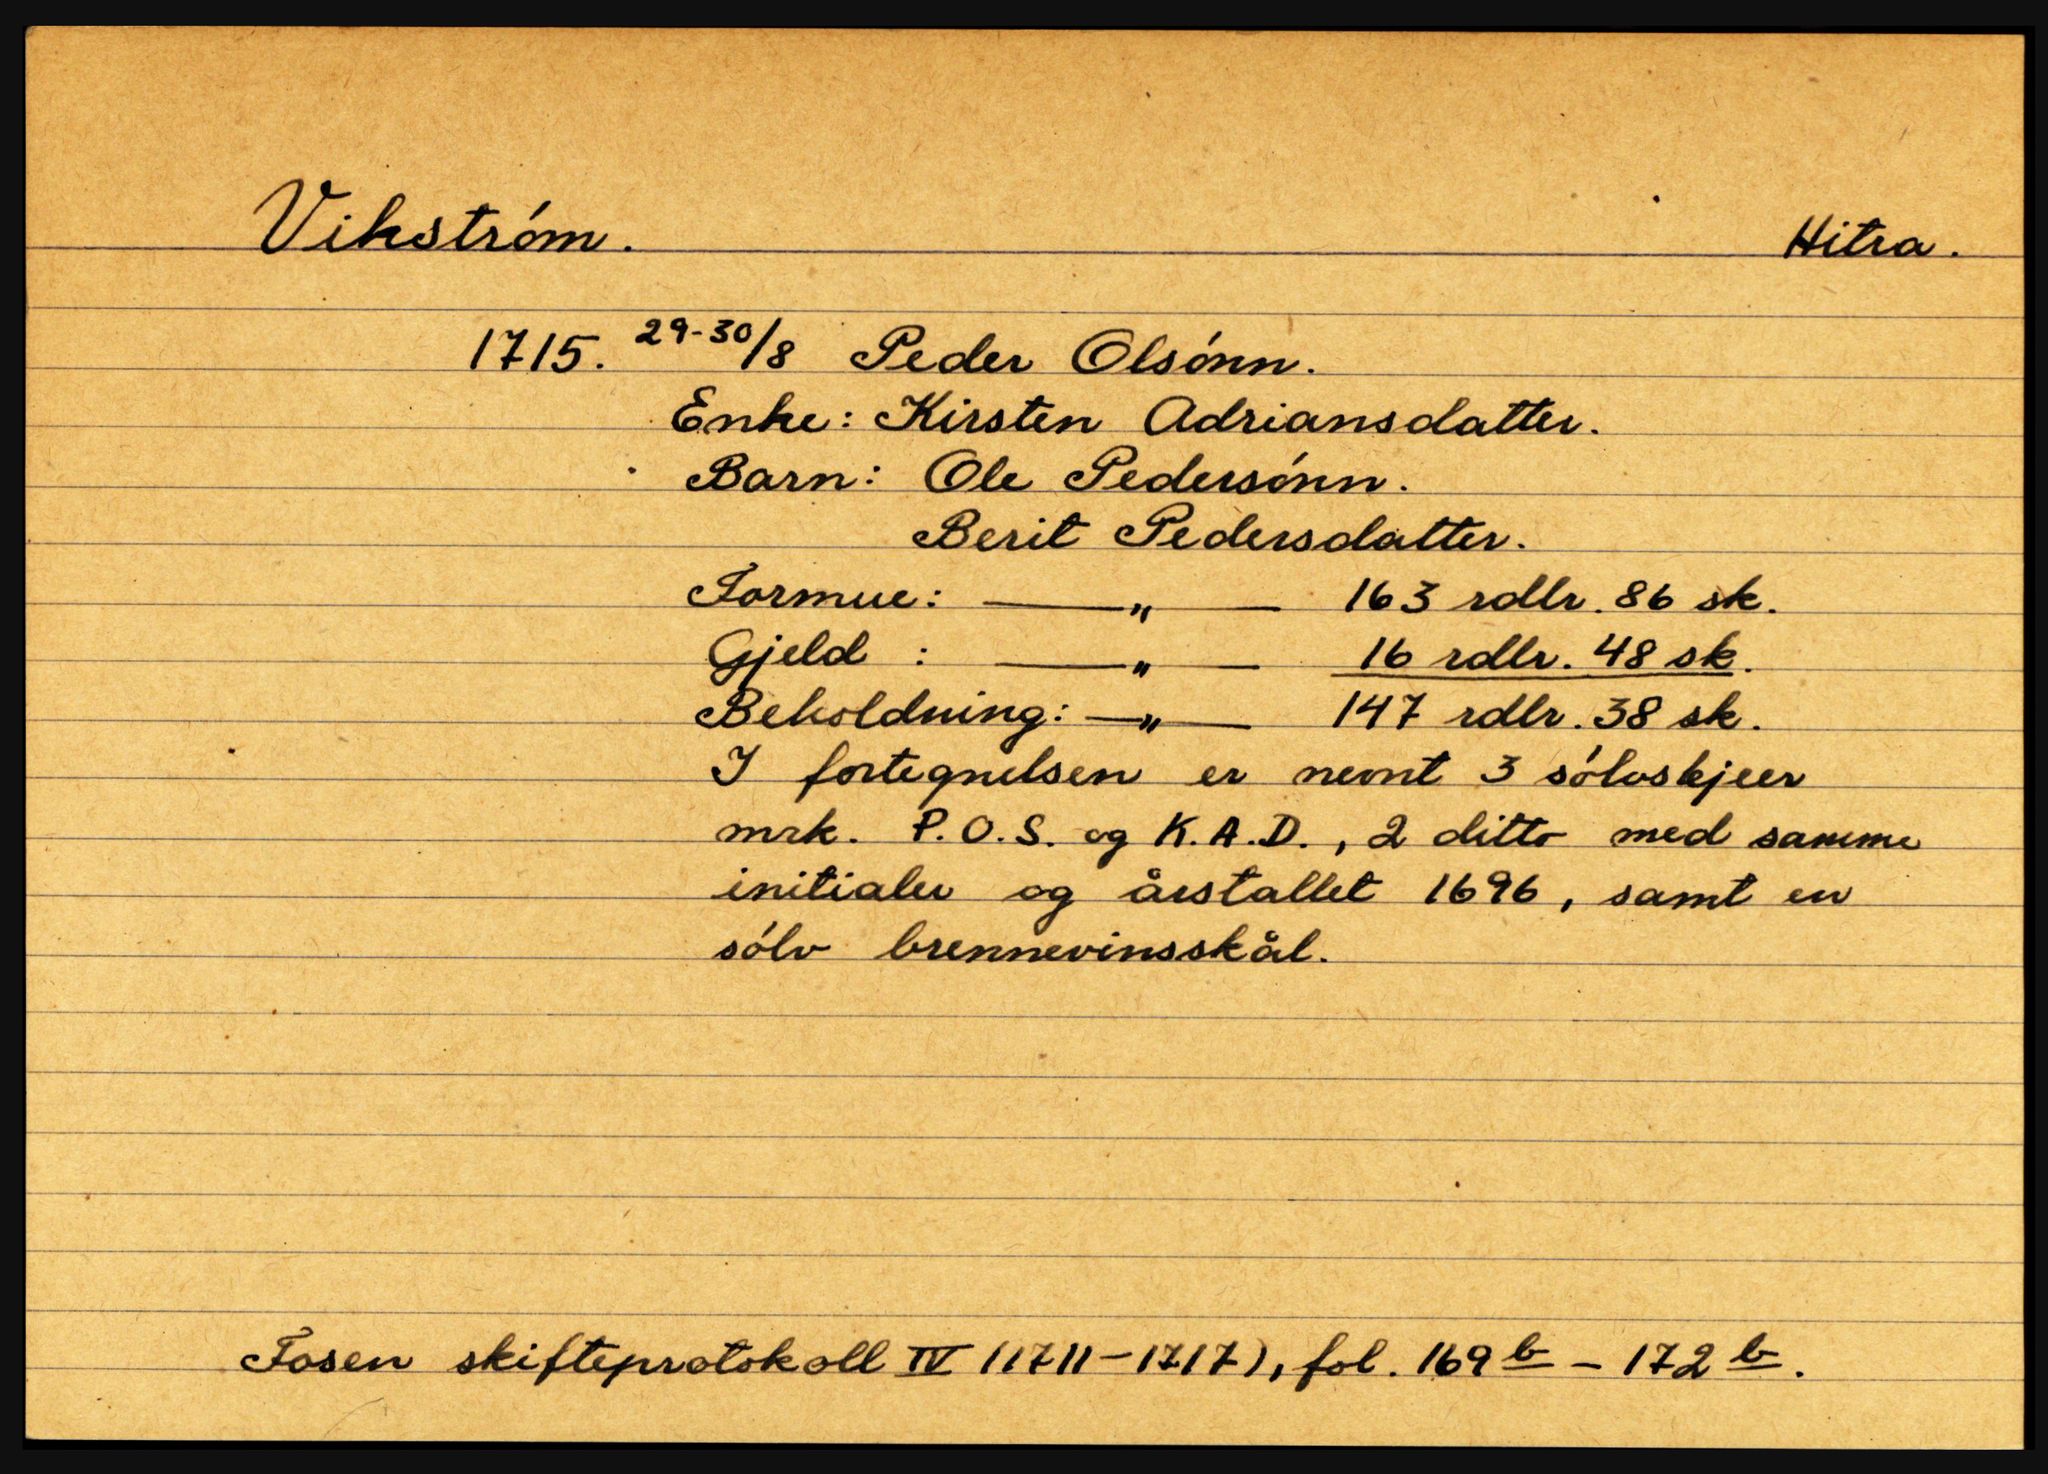 Vikstróm. Hitra.
1715. 29-30/8 Peder Olsónn.
Enke: Kirsten Adriansdatter.
Barn: Ole Pedersónn.
Berit Pedersdatter.
Formue: —„— 163 rdlr. 86 sk.
Gjeld : —„— 16 rdlr. 48 sk.
Beholdning: —„— 147 rdlr. 38 sk.
I fortegnelsen er nevnt 3 sólvskjeer
mrk. P.O.S. og K.A.D., 2 ditto med samme
initialer og årstallet 1696, samt en
sólv brennevinsskål.
Fosen skifteprotokoll IV (1711-1717), fol. 169 b - 172 b.